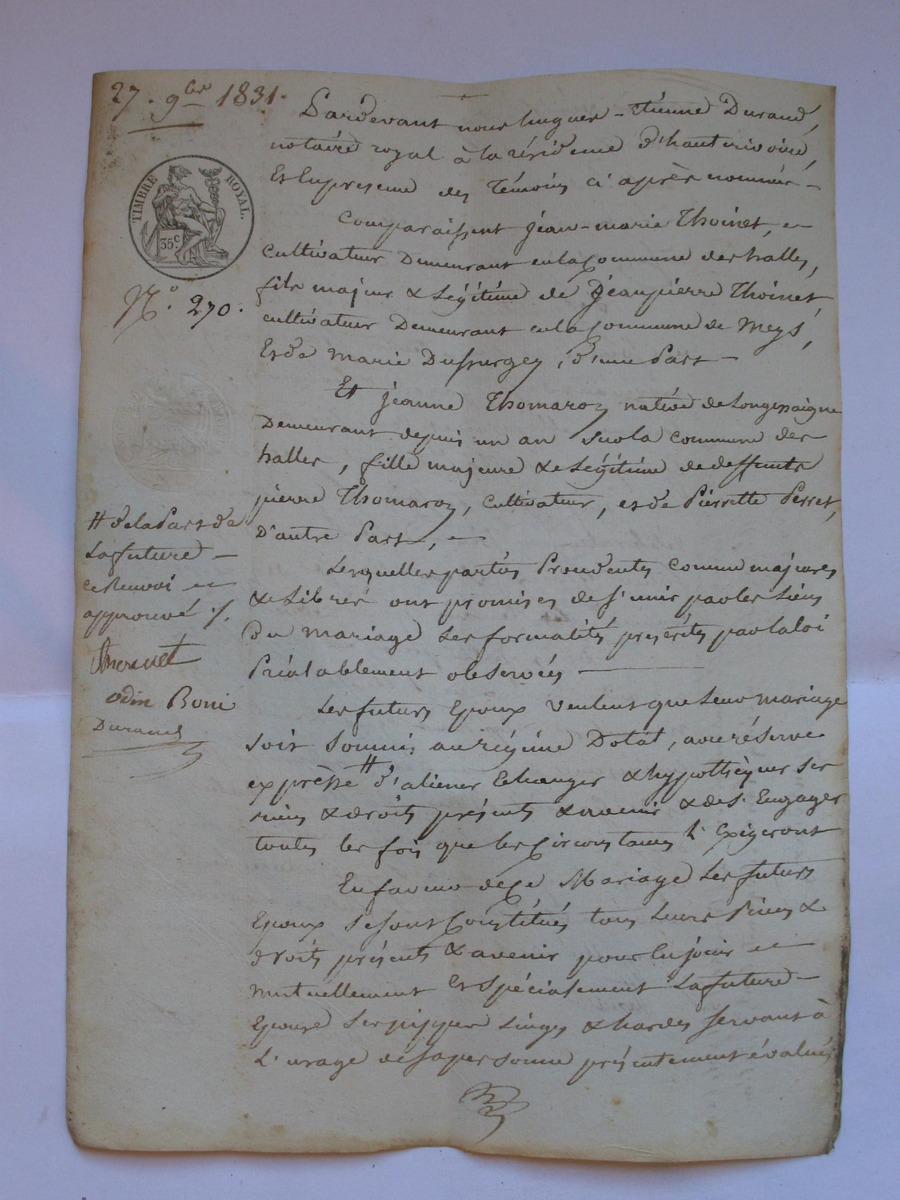 27. 9bre 1831.
TIMBRE ROYAL.
35c.
No. 270.
Pardevant nous hugues-étienne Durand,
notaire royal à la résidence d'hauterivoire,
Et En presence des Témoins ci après nommés -
Comparaissent jean-marie Thoinet,
cultivateur Demeurant en la Commune des halles,
fils majeur & Légitime de Jean pierre Thoinet
cultivateur Demeurant en la Commune de Meys,
Et de Marie Dussurgey, d'une Part -
Et jeanne Thomaroz native de Longessaigne
Demeurant depuis un an Sur la commune des
halles, fille majeure & Légitime de deffunts
pierre Thomaroz, cultivateur, et de Pierrette Perret,
D'autre Part, -
Lesquelles parties Procédantes comme majeures
& Libres ont promises de S'unir par les Liens
Du mariage Les formalités préscrites par la loi
Préalablement observées -
Les futurs Epoux veulent que Leur mariage
soit Soumis au régime Dotal, avec réserve
expresse # d'aliéner Echanger & hypothéquer ses
biens & droits présents & avenir & de S'Engager
toutes les fois que les Circonstances l'Exigeront
En faveur de Ce Mariage Les futurs
Epoux Se sont Constitués tous Leurs Biens &
droits présents & avenir pour En jouir
mutuellement Et Spécialement La future -
Epouse Ses nippes Linges & hardes servant à
L'usage de sa personne présentement évalués
# de la Part de
La future -
ce Renvoi
approuvé ./.
odin Boni
Durand